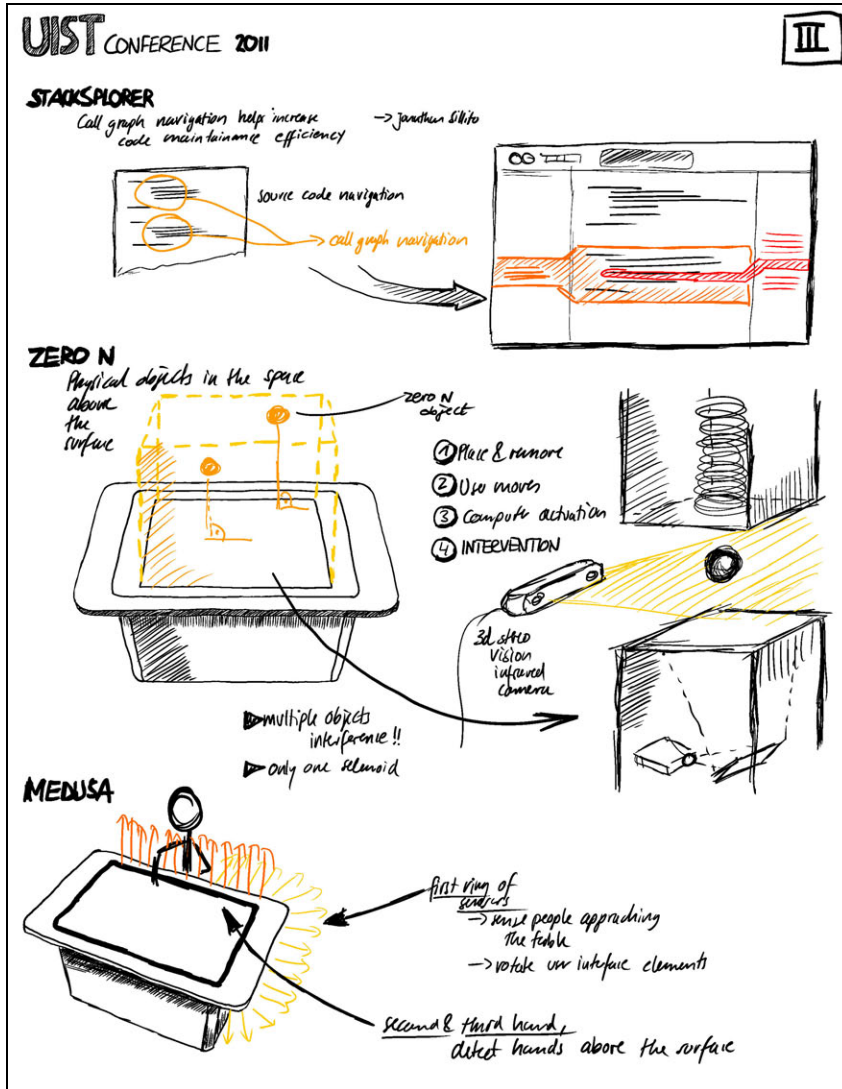 UIST CONFERENCE 2011
III
STACKSPLORER
Call graph navigation helps increase
code maintainance efficiency
→ Jonathan Sillito
source code navigation
→ call graph navigation
ZERO N
Physical objects in the space
above
the
surface
zero N
object
① Place & remove
② User moves
③ Computer actuation
④ INTERVENTION
3d stereo
vision
infrared
camera
▶ multiple objects
interference!!
▶ only one selenoid
MEDUSA
first ring of
sensors
→ sense people approaching
the table
→ rotate user interface elements
second & third hand,
detect hands above the surface